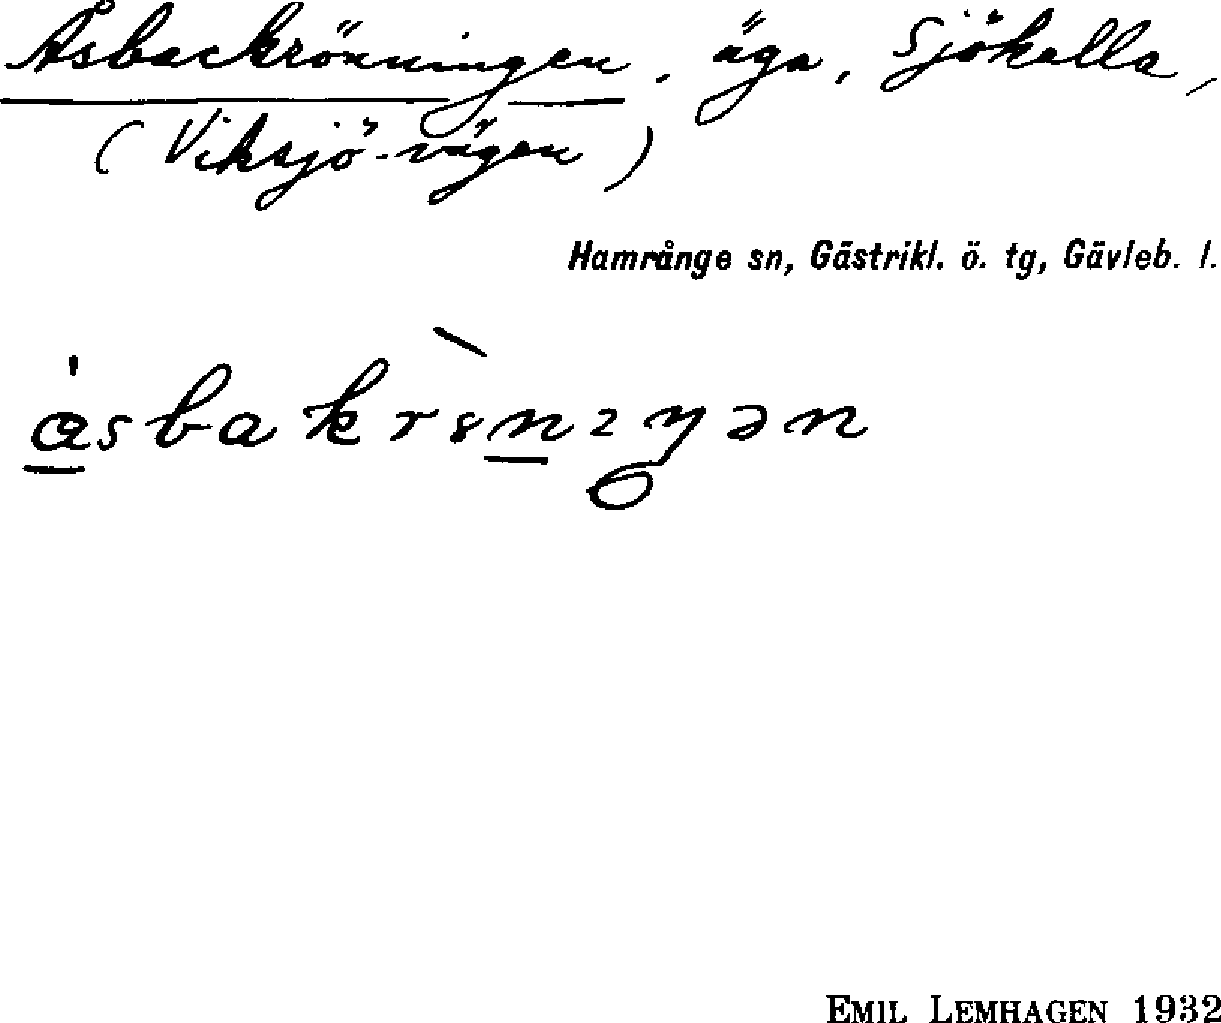 Åsbackrönningen, äga, Sjökalla,
(Viksjö-vägen)
Hamrånge sn, Gästrikl. ö. tg, Gävleb. l.
EMIL LEMHAGEN 1932